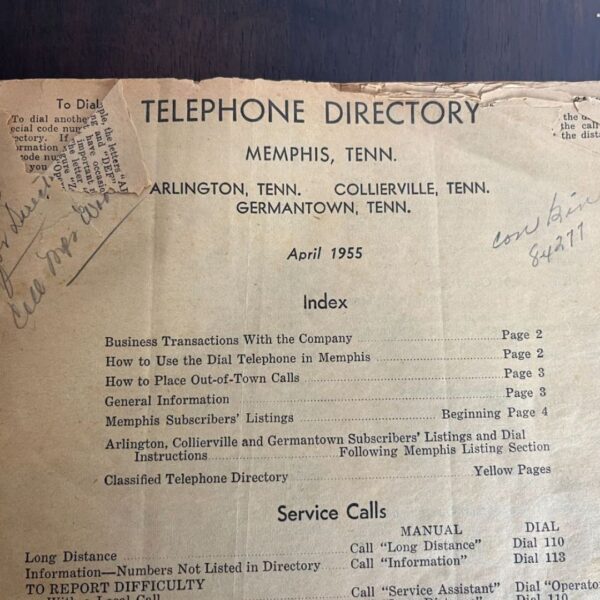 To Dial
To dial anothe
ecial code num
ectory. If
rmation
code nu
you
ple, the letters "A
ng and "DEF
have occasio
important
the letter "Z
gure
"Ope
TELEPHONE DIRECTORY
the
the cal
the dista
MEMPHIS, TENN.
ARLINGTON, TENN. COLLIERVILLE, TENN.
GERMANTOWN, TENN.
Call Mrs
84277
April 1955
Index
Business Transactions With the Company Page 2
How to Use the Dial Telephone in Memphis Page 2
How to Place Out-of-Town Calls Page 3
General Information Page 3
Memphis Subscribers' Listings Beginning Page 4
Arlington, Collierville and Germantown Subscribers' Listings and Dial
Instructions Following Memphis Listing Section
Classified Telephone Directory Yellow Pages
Service Calls
MANUAL DIAL
Long Distance Call "Long Distance" Dial 110
Information—Numbers Not Listed in Directory Call "Information" Dial 113
TO REPORT DIFFICULTY
With a Local Call Call "Service Assistant" Dial "Operato
Dial 110